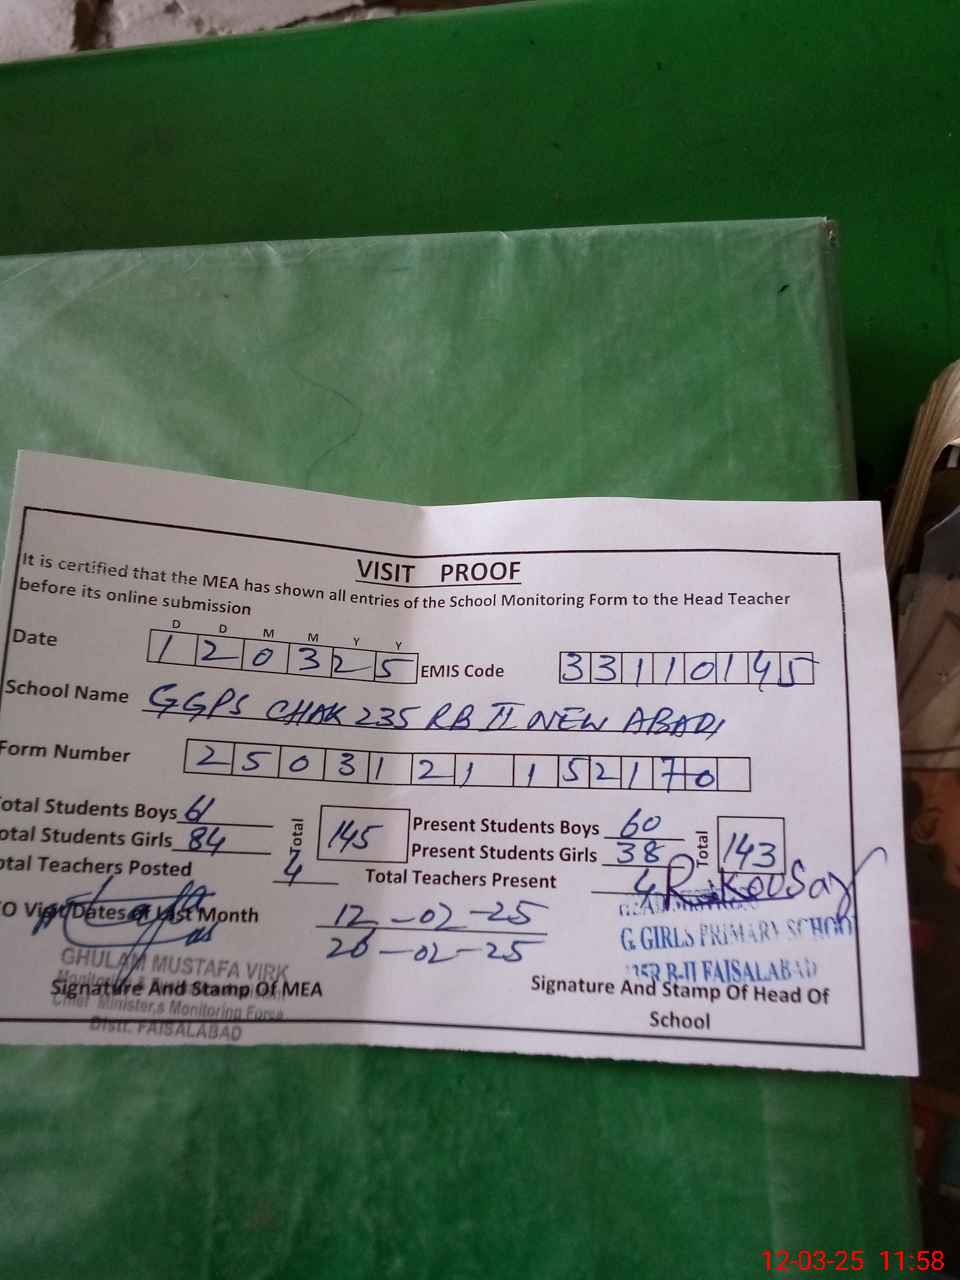 VISIT PROOF
It is certified that the MEA has shown all entries of the School Monitoring Form to the Head Teacher
before its online submission
D D M M Y Y
Date 1 2 0 3 2 5 EMIS Code 3 3 1 1 0 1 4 5
School Name GGPS CHAK 235 RB II NEW ABADI
Form Number 2 5 0 3 1 2 1 1 5 2 1 7 0
otal Students Boys 61 Total 145 Present Students Boys 60 Total 143
otal Students Girls 84 Present Students Girls 38
otal Teachers Posted 4 Total Teachers Present 4
R. Kousar
O Visit Dates of Last Month 12-02-25
26-02-25
G. GIRLS PRIMARY SCHOOL
R B-II FAISALABAD
GHULAM MUSTAFA VIRK
Signature And Stamp Of MEA
Chief Minister,s Monitoring Force
Distt. FAISALABAD
Signature And Stamp Of Head Of
School
12-03-25 11:58